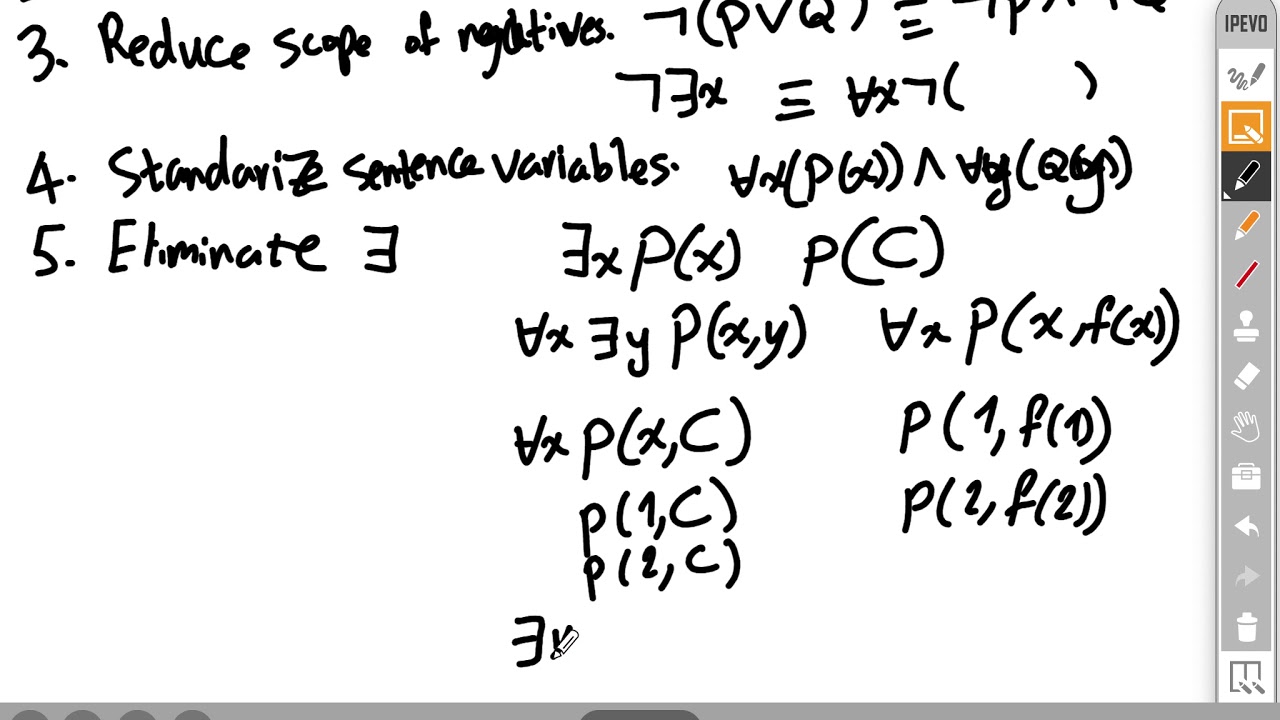 3. Reduce scope of negatives. ¬(P∨Q) ≡ ¬P∧¬Q
¬∃x ≡ ∀x¬( )
4. Standarize sentence variables. ∀x(P(x)) ∧ ∀y(Q(y))
5. Eliminate ∃ ∃x P(x) P(C)
∀x ∃y P(x,y) ∀x P(x,f(x))
∀x P(x,C) P(1,f(1))
P(1,C) P(2,f(2))
P(2,C)
∃
IPEVO